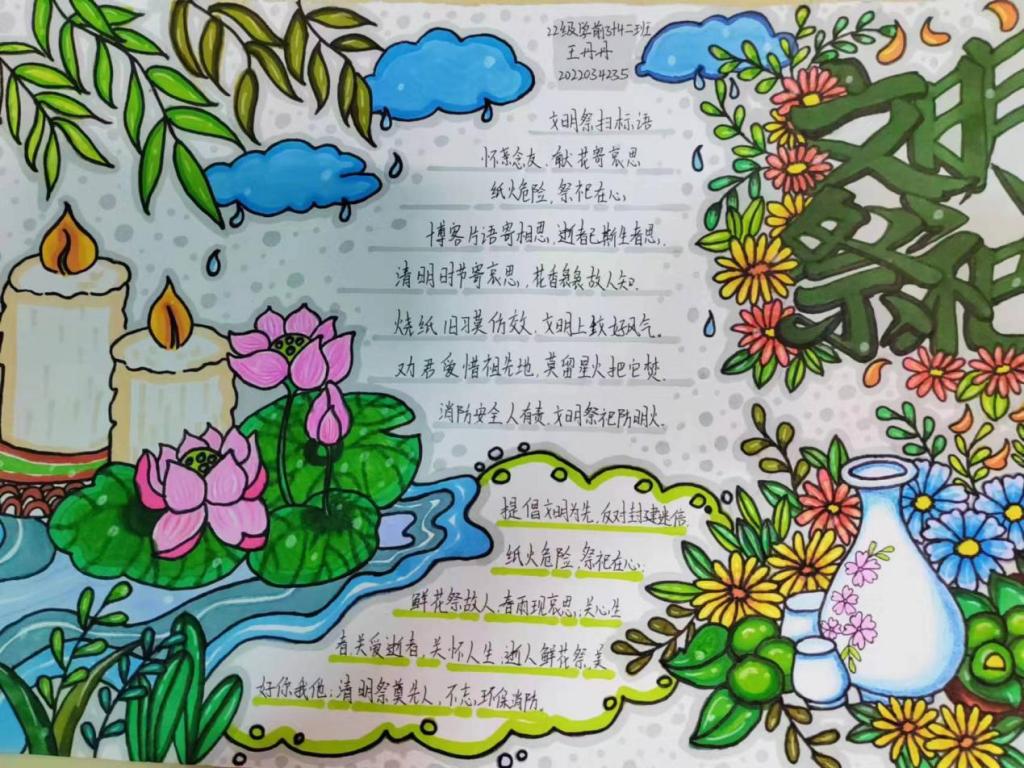 22级学前3+4二班
王丹丹
2022034235
文明祭扫标语
怀亲念友、献花寄哀思
纸火危险，祭祀在心；
博客片语寄相思，逝者已斯生者思；
清明时节寄哀思，花香袅袅故人知。
烧纸旧习莫仿效、文明上坟好风气。
劝君爱惜祖先地，莫留星火把它焚.
消防安全人有责、文明祭祀防明火.
文明
祭祀
提倡文明为先，反对封建迷信.
纸火危险，祭祀在心；
鲜花祭故人，春雨现哀思；关心生
者，关爱逝者，关怀人生；逝人鲜花祭，美
好你我他；清明祭奠先人，不忘环保消防。